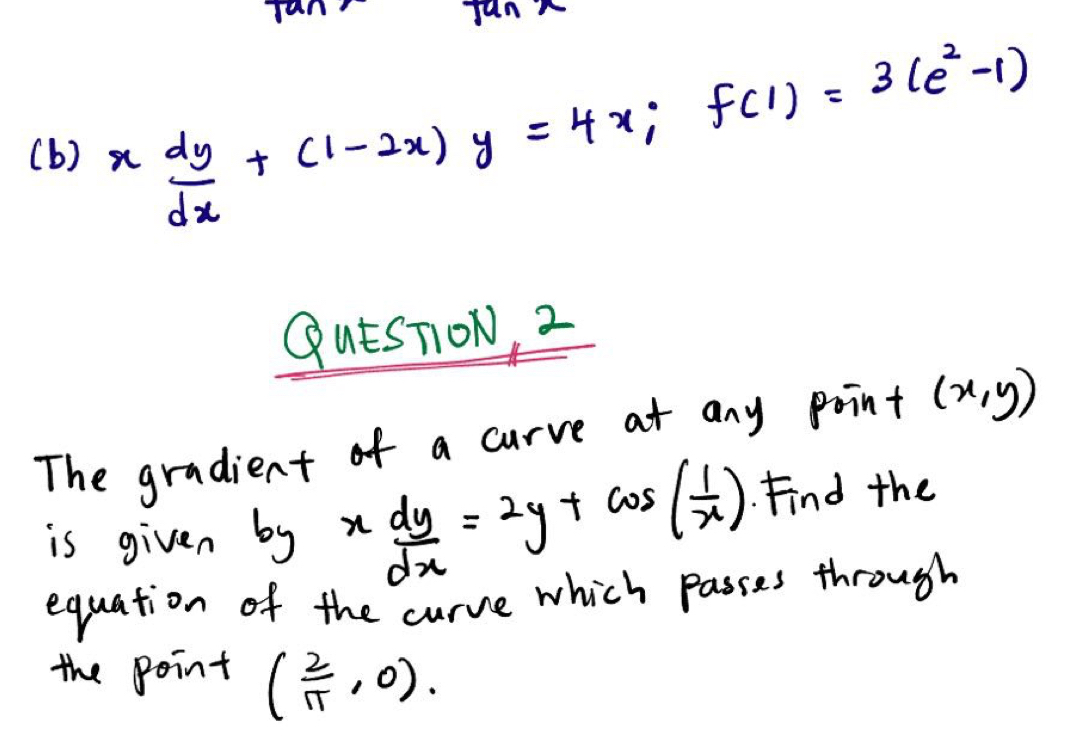 tan x tan x
(b) x dy/dx + (1-2x) y = 4x; f(1) = 3(e²-1)
QUESTION 2
The gradient of a curve at any point (x,y)
is given by x dy/dx = 2y + cos (1/x). Find the
equation of the curve which passes through
the point (2/π, 0).